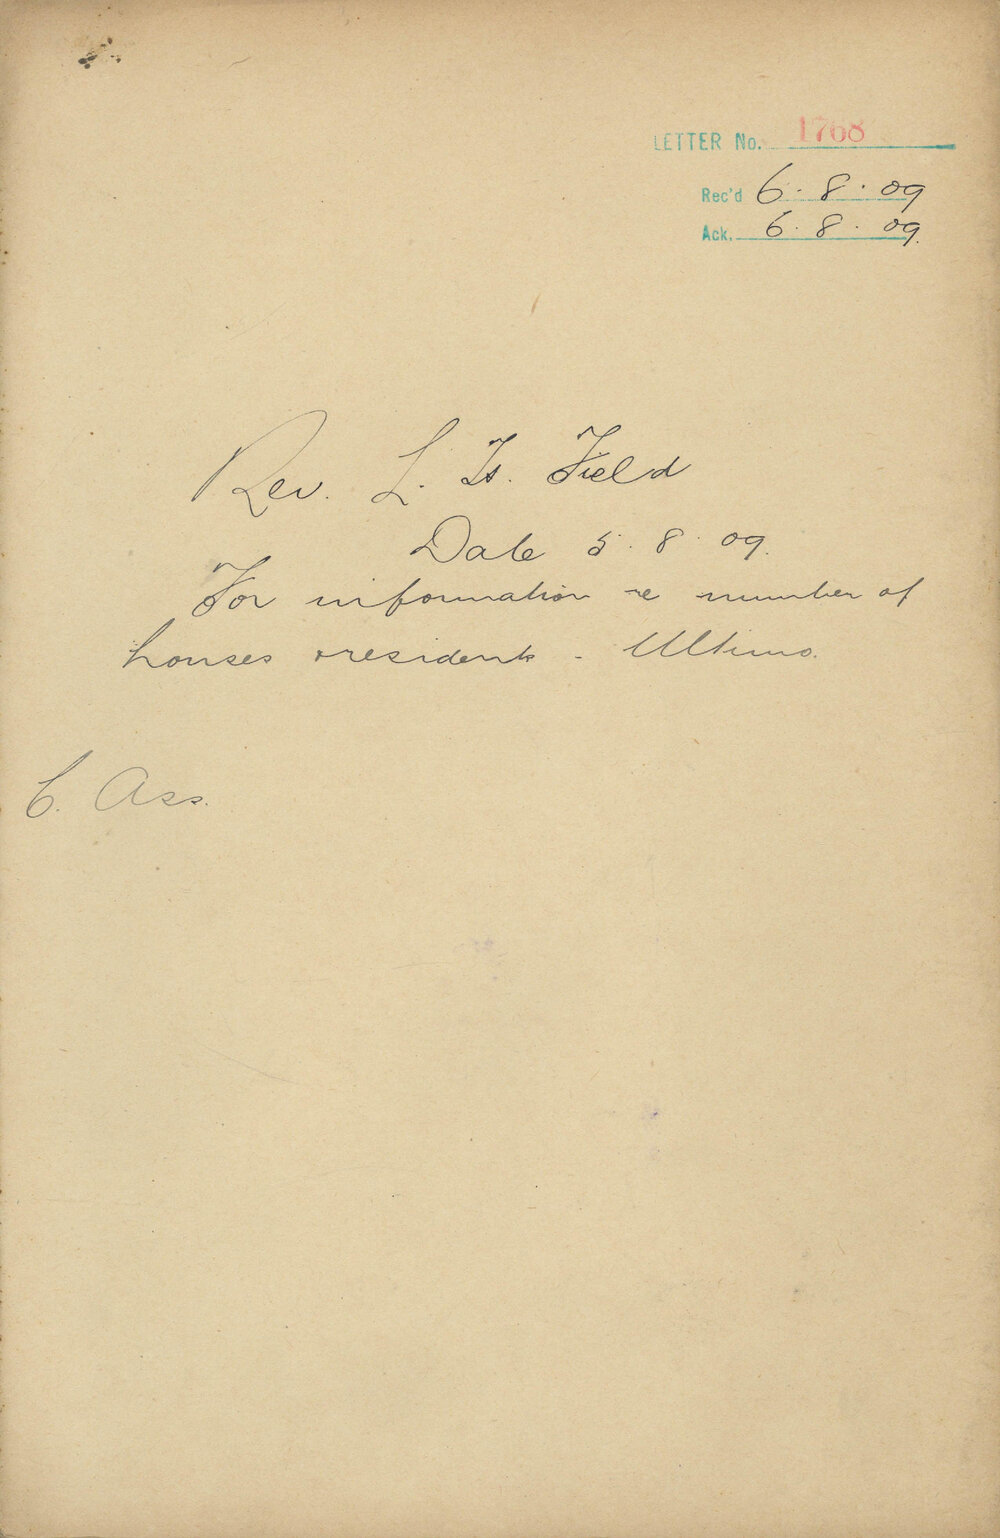 LETTER No. 1768
Rec'd 6.8.09
Ack. 6.8.09.
Rev. L. Field
Date 5.8.09.
For information re number of
houses & residents - Ultimo.
C. Ass.